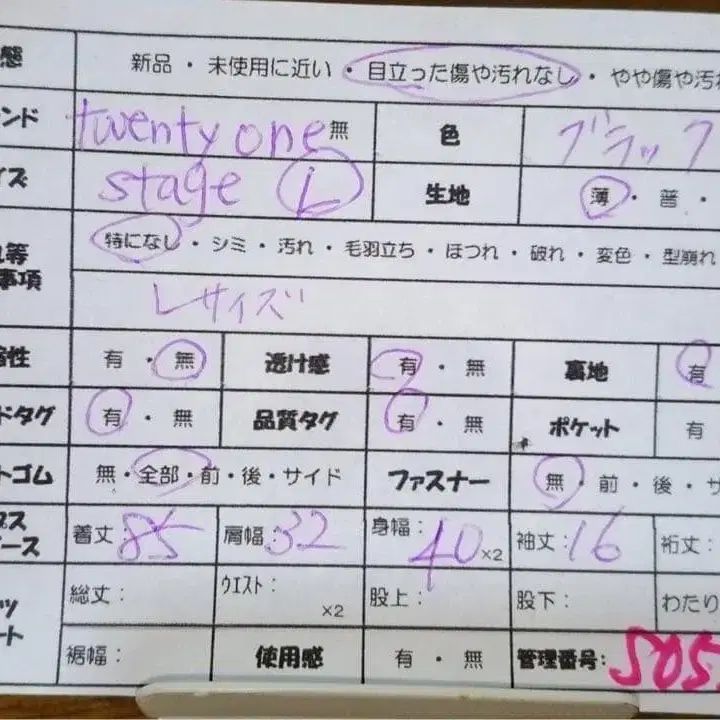 態 新品・未使用に近い・目立った傷や汚れなし・やや傷や汚れ
ンド twenty one 無 色 ブラック
イズ stage L 生地 薄・普・
等 特になし・シミ・汚れ・毛羽立ち・ほつれ・破れ・変色・型崩れ
事項 Lサイズ
縮性 有・無 透け感 有・無 裏地 有
ドタグ 有・無 品質タグ 有・無 ポケット 有
トゴム 無・全部・前・後・サイド ファスナー 無・前・後・サ
プス
ピース 着丈:85 肩幅:32 身幅:40×2 袖丈:16 裄丈:
ツ
ート 総丈: ウエスト: ×2 股上: 股下: わたり
裾幅: 使用感 有・無 管理番号:505